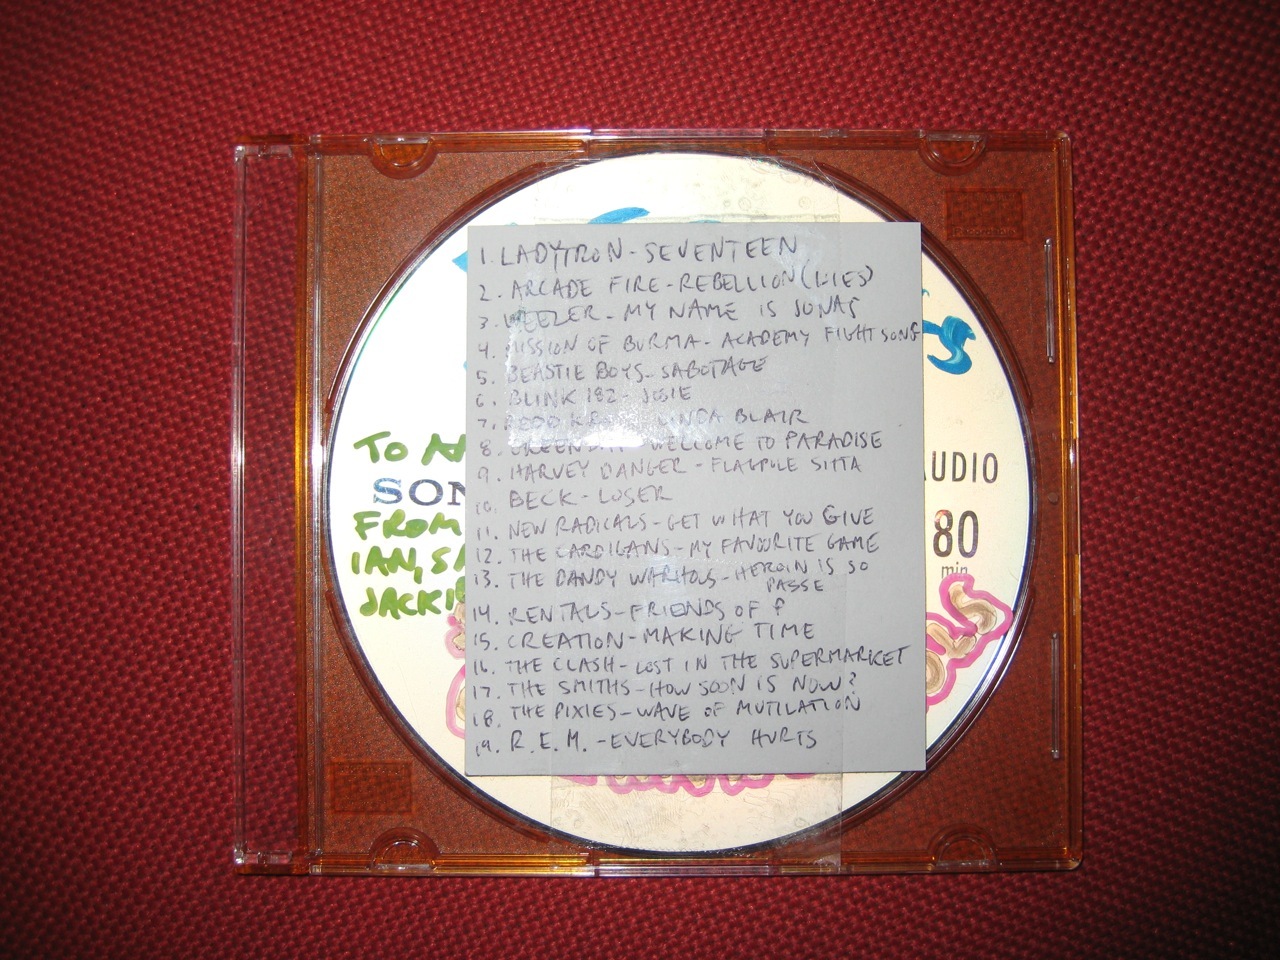 1. LADYTRON - SEVENTEEN
2. ARCADE FIRE - REBELLION (LIES)
3. WEEZER - MY NAME IS JONAS
4. MISSION OF BURMA - ACADEMY FIGHT SONG
5. BEASTIE BOYS - SABOTAGE
6. BLINK 182 - JOSIE
7. REDD KROSS - LINDA BLAIR
8. GREEN DAY - WELCOME TO PARADISE
9. HARVEY DANGER - FLAGPOLE SITTA
10. BECK - LOSER
11. NEW RADICALS - GET WHAT YOU GIVE
12. THE CARDIGANS - MY FAVOURITE GAME
13. THE DANDY WARHOLS - HEROIN IS SO
PASSE
14. RENTALS - FRIENDS OF P
15. CREATION - MAKING TIME
16. THE CLASH - LOST IN THE SUPERMARKET
17. THE SMITHS - HOW SOON IS NOW?
18. THE PIXIES - WAVE OF MUTILATION
19. R.E.M. - EVERYBODY HURTS
TO
SON
FROM
IAN, SA
JACKI
AUDIO
80
min